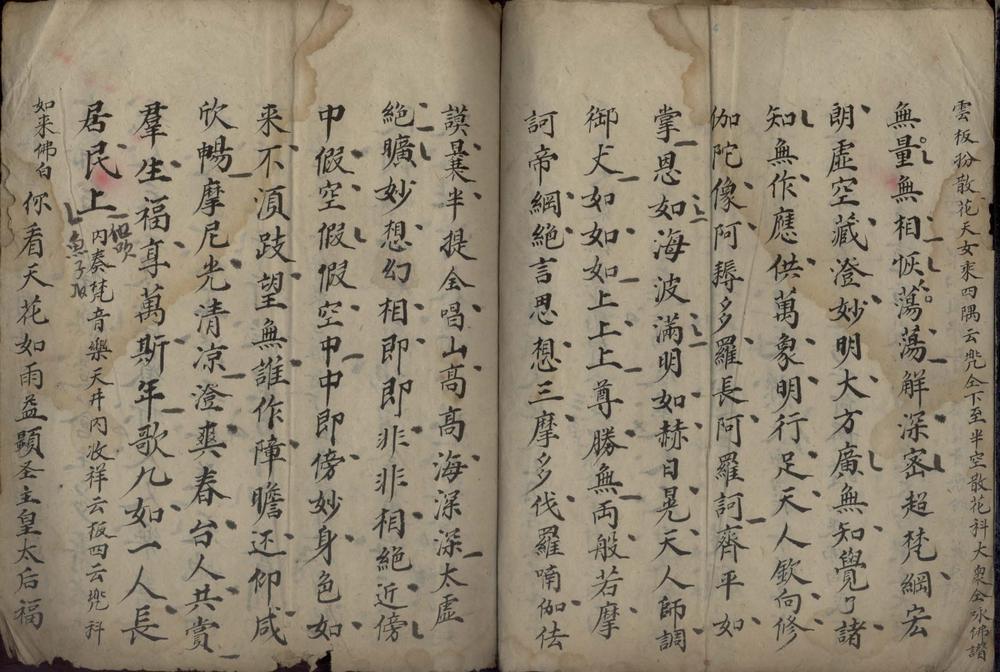 雲板扮散花天女来四隅云兜仝下至半空散花科大衆仝咏佛讃
無量無相恢蕩蕩解深密超梵綱宏
朗虚空藏澄妙明大方廣無知覺了諸
知無作應供萬象明行足天人欽向修
伽陀像阿耨多羅長阿羅訶齊平如
掌恩如海波滿明如赫日晃天人師調
御丈如如如上上上尊勝無両般若摩
訶帝網絶言思想三摩多伐羅喃伽佉
謨曩半提仝唱山高高海深深太虚
絶曠妙想幻相即即非非相絶近傍
中假空假假空中中即傍妙身色如
来不湏跂望無誰作障瞻还仰咸
欣暢摩尼光清凉澄爽春台人共賞
羣生福享萬斯年歌九如一人長
居民上但吹内奏梵音樂天井内收祥云板四云兜科
如来佛白你看天花如雨益顯圣主皇太后福